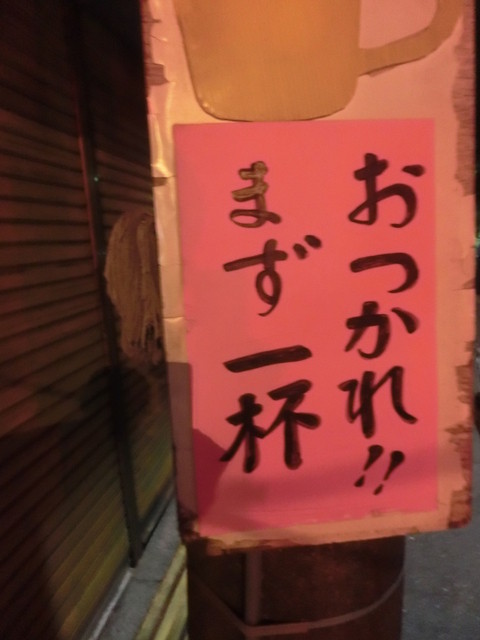 おつかれ!!
まず一杯